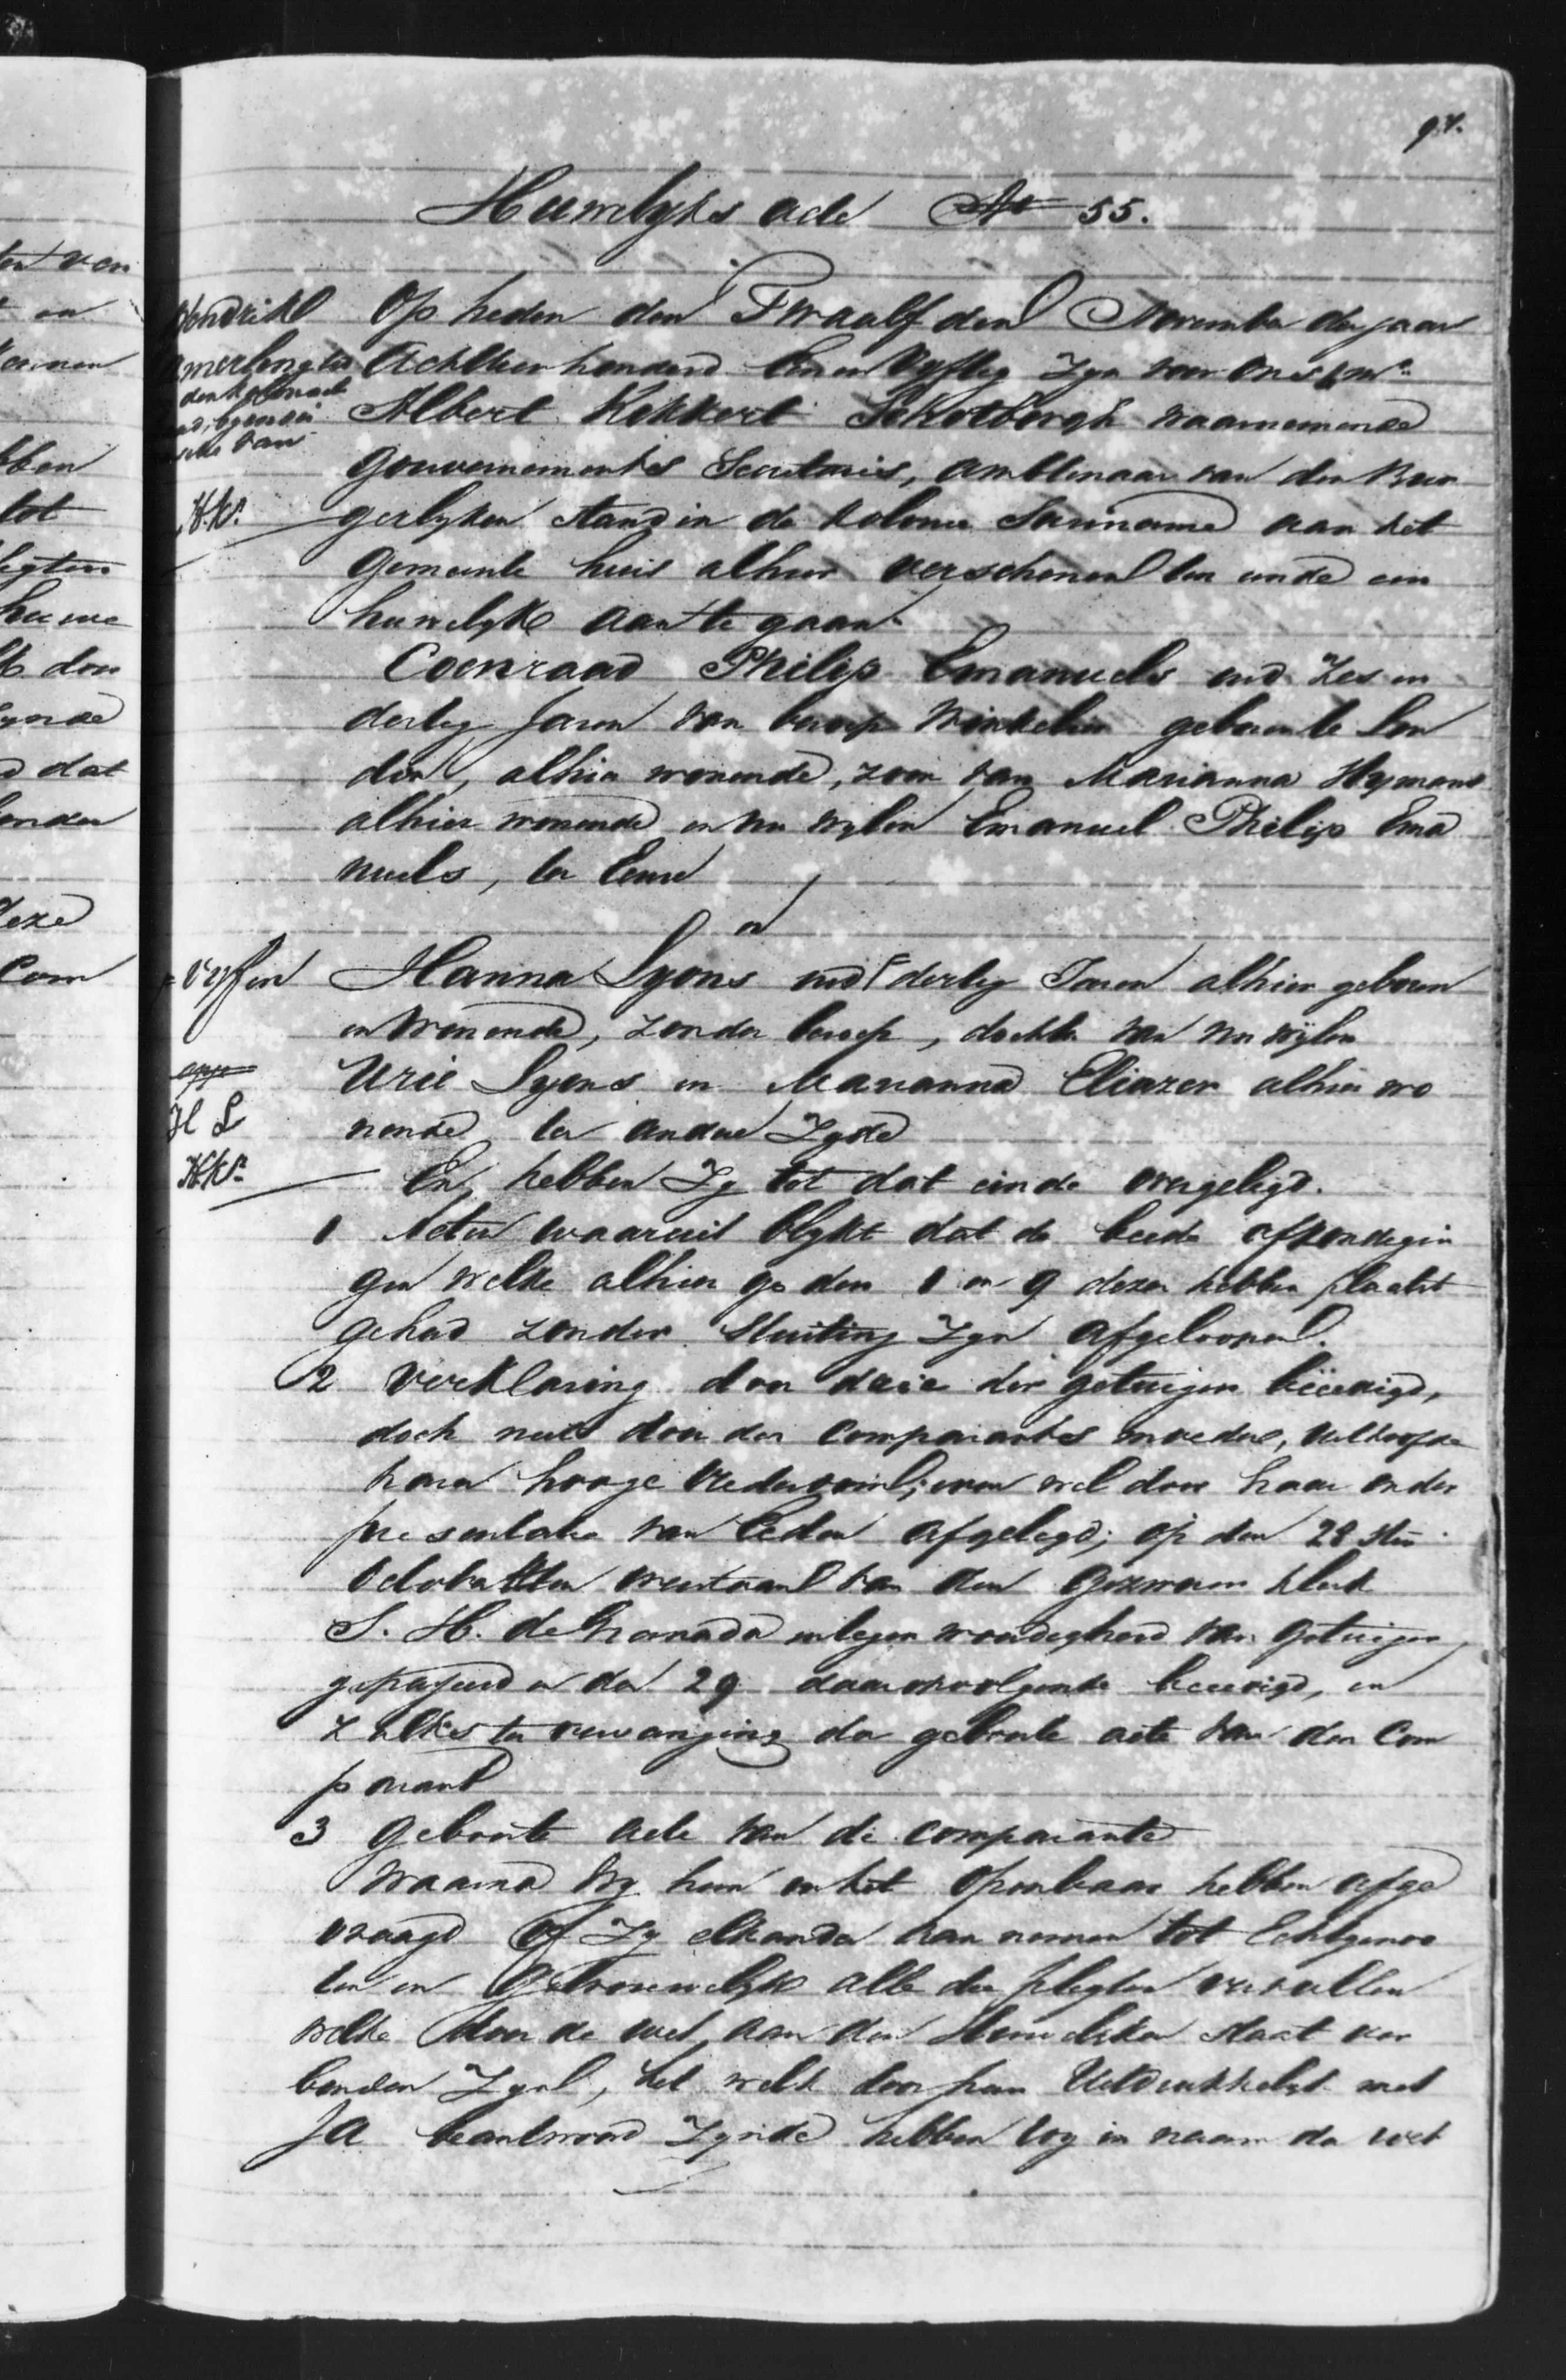 97.
Huwelyks acte No 55.
Op heden den Twaalfden November des jaars
Achttienhonderd Een en Vyftig Zyn voor ons Mr
Albert Kokkert Schotborgh waarnemende
Gouvernements Secretaris, Ambtenaar van den Bur
gerlyken Stand in de Kolonie Suriname aan het
Gemeente huis alhier verschenen ten einde een
huwelyk aan te gaan
Coenraad Philip Emanuels oud Zes en
dertig Jaren van beroep Winkelier geboren te Lon
den, alhier wonende, zoon van Marianna Hymans
alhier wonende en nu wylen Emanuel Philip Ema
nuels, ter Eenre
en
Hanna Lyons oud dertig Jaren alhier geboren
en Wonende, zonder beroep, dochter van nu wijlen
Urie Lyons en Marianna Eliazer alhier wo
nende ter andere Zyde
En hebben Zy tot dat einde overgelegd.
1 Acten waaruit blykt dat de beide afkondigin
gen welke alhier op den 1 en 9 dezer hebben plaats
gehad zonder Stuiting Zyn afgeloopen.
2 Verklaring door drie der getuigen beëedigd,
doch niet door der Comparants moeder, uithoofde
harer hooge ouderdom; even wel door haar onder
presentatie van Eeden afgelegd; op den 28 ste
October ten overstaan van den Gezworen klerk
S. H. de Granada in tegenwoordigheid van Getuigen
gepasseerd en den 29 daaraanvolgende beeedigd, en
zulks ter vervanging der geboorte acte van den Com
parant
3 Geboorte acte van de comparante
Waarna Wy hun in het Openbaar hebben afge
vraagd of Zy elkander aannemen tot Echtgenoo
ten en Getrouwelyk alle de plegten vervullen
welke door de wet aan den Huwelyken Staat ver
bonden Zyn, het welk door hun Uitdrukkelyk met
Ja beantwoord Zynde hebben wy in naam der wet
Hendrik
van
=vyf en
app
H L